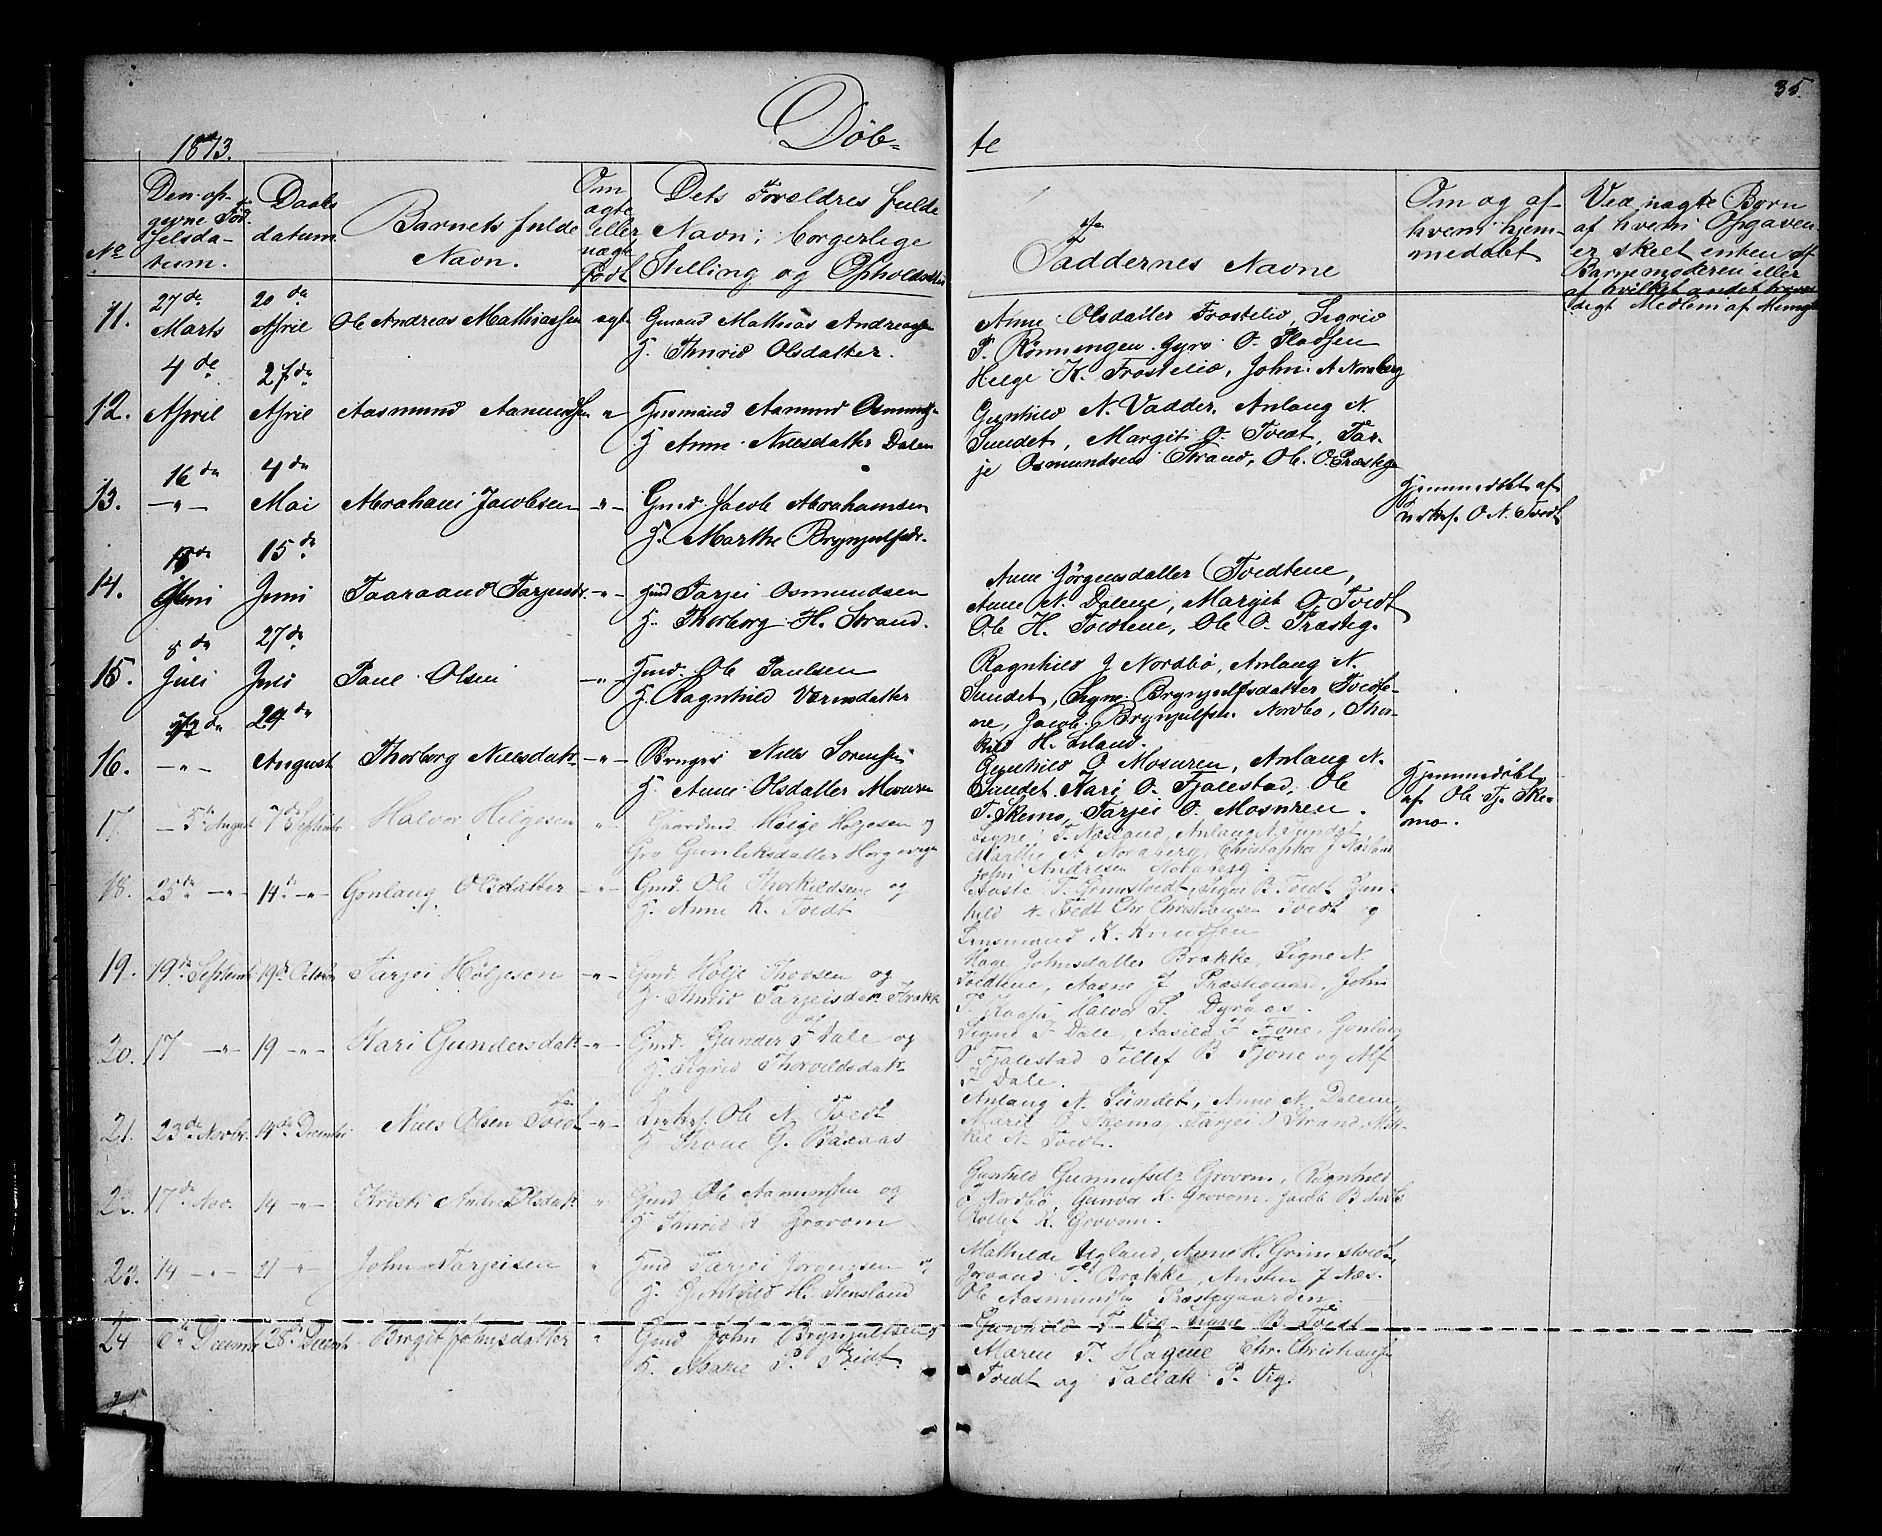 35.
Döb- te
1873.
No
Den op-
givne Föd-
selsda-
tum.
Daabs
datum.
Barnets fulde
Navn.
Om
ægte
eller
uægte
födt
Dets Forældres fulde
Navn; borgerlige
Stilling og Opholdssted
Faddernes Navne
Om og af
hvem hjem-
medöbt
Ved uægte Börn
af hvem Opgaven
er skeet enten af
Barnemoderen eller
af hvilket andet trovær-
digt Medlem af Menigh
11. 27de Marts 20de April Ole Andreas Mathiassen ægt Gmand Mathias Andreassen
H. Thurid Olsdatter.
Anne Olsdatter Frostelid, Sigrid
T. Rönningen. Gyro O. Pladsen
Helge K. Frostelid, John A Noraberg
12. 4de April 27de April Aasmund Aanundsen " Husmand Aanund Osmunds-
H Anne Nielsdatter Dalen
Gunhild N. Vadder, Anlaug N.
Sundet, Margit O. Tvedt, Tar-
je Osmundsen Strand, Ole O. Præsteg
13. 16de -"- 4de Mai Abraham Jacobsen -"- Gmd. Jacob Abrahamsen
H. Marthe Brynjulfsdr.
Hjemmedöbt af
Kirkes. O N. Tvedt
14. Juni 15de Juni Taaraand Tarjeisdr. -"- Hmd Tarjei Osmundsen
H. Thorborg H. Strand.
Anne Jörgensdatter Tvedtene,
Anne N. Dalene, Margit O. Tvedt
Ole H. Tvedtene, Ole O. Præsteg.
15. 8de Juli 27de Juli Paul Olsen -"- Hmd. Ole Paulsen
H. Ragnhild Værnsdatter
Ragnhild J Nordbö, Anlaug N.
Sundet, Signe Brynjulfsdatter Tvedte-
ne, Jacob Brynjulfsn. Nordbö, Thor-
kild H. Liland.
16. -"- 29de August Thorborg Nielsdatr -"- Bruger Niels Sörensen
H. Anne Olsdatter Mosuren
Gunhild O Mosuren, Anlaug N.
Sundet. Kari O. Fjalestad, Ole
T. Skemo, Tarjei O. Mosuren.
Hjemmedöbt
af Ole Tj. Ske-
mo.
17. 5te August 7de Septembr Halvor Helgesen " Gaardmd Helge Holjesen og
Gro Gunleksdatter Horgevigen
Signe T. Næsland, Anlaug N. Sundet,
Marthe A Noraberg, Christopher J Næsland
John Andresen Noraberg.
18. 25de -"- 14de -"- Gonlaug Olsdatter -"- Gmd. Ole Thorkildsen og
H. Anne K. Tvedt
Aaste T. Grimstvedt, Signe B Tvedt Gun-
hild Tvedt Chr Christiansen Tvedt og
K. Knudsen
19. 19de Septembr 19de October Tarjei Höljesen -"- Gmd. Hölje Thovsen og
H. Tarjeisdatr
Johnsdatter Brække, Signe N.
Tvedtene, Aasne J Præstgaard, John
T. Kaase Halvor S. Dyraas.
20. 17 -"- 19 -"- Kari Gundersdatr -"- Gmd. Gunder T Dale og
H. Sigrid Thorvildsdatr
Signe T Dale, Aasild T Tjöne, Gonlaug
O Fjalestad Tellef B Tjöne og Alf
T Dale.
21. 23de Novbr. 14de Decembr Niels Olsen Tvedt -"- Kirkes. Ole N. Tvedt
H Thone G. Baasaas
Anlaug N. Sundet, Anne N. Dalene,
Marie O. Skemo, Tarjei O Strand, Mik-
kel N. Tvedt.
22. 17de Nov. 14 -"- Kristi Andrea Olsdatr " Gmd Ole Aanundsen og
H Thurid K Grovom
Gunhild Gunnufsdr Grovom, Ragnhild
J Nordbö, Gunvor K. Grovom. Jacob B
Rollef K. Grovom.
23. 14 -"- 21 -"- John Tarjeisen " Hmd Tarjei Jörgensen og
H. Gunhild H. Stensland
Mathilde Ugland, Anne H. Grimstvedt,
Joraand T. Brække, Austen J Næs.
Ole Aasmundsen Præstegaarden.
24 6te Decembr 28de Decembr Birgit Johnsdatter " Gmd John Brynjulfsen og
H. Marie P. Tvedt.
Gunhild T Vig Signe B. Tvedt
Maren T. Hagene Chr. Christiansen
Tvedt og Tallak P. Vig.